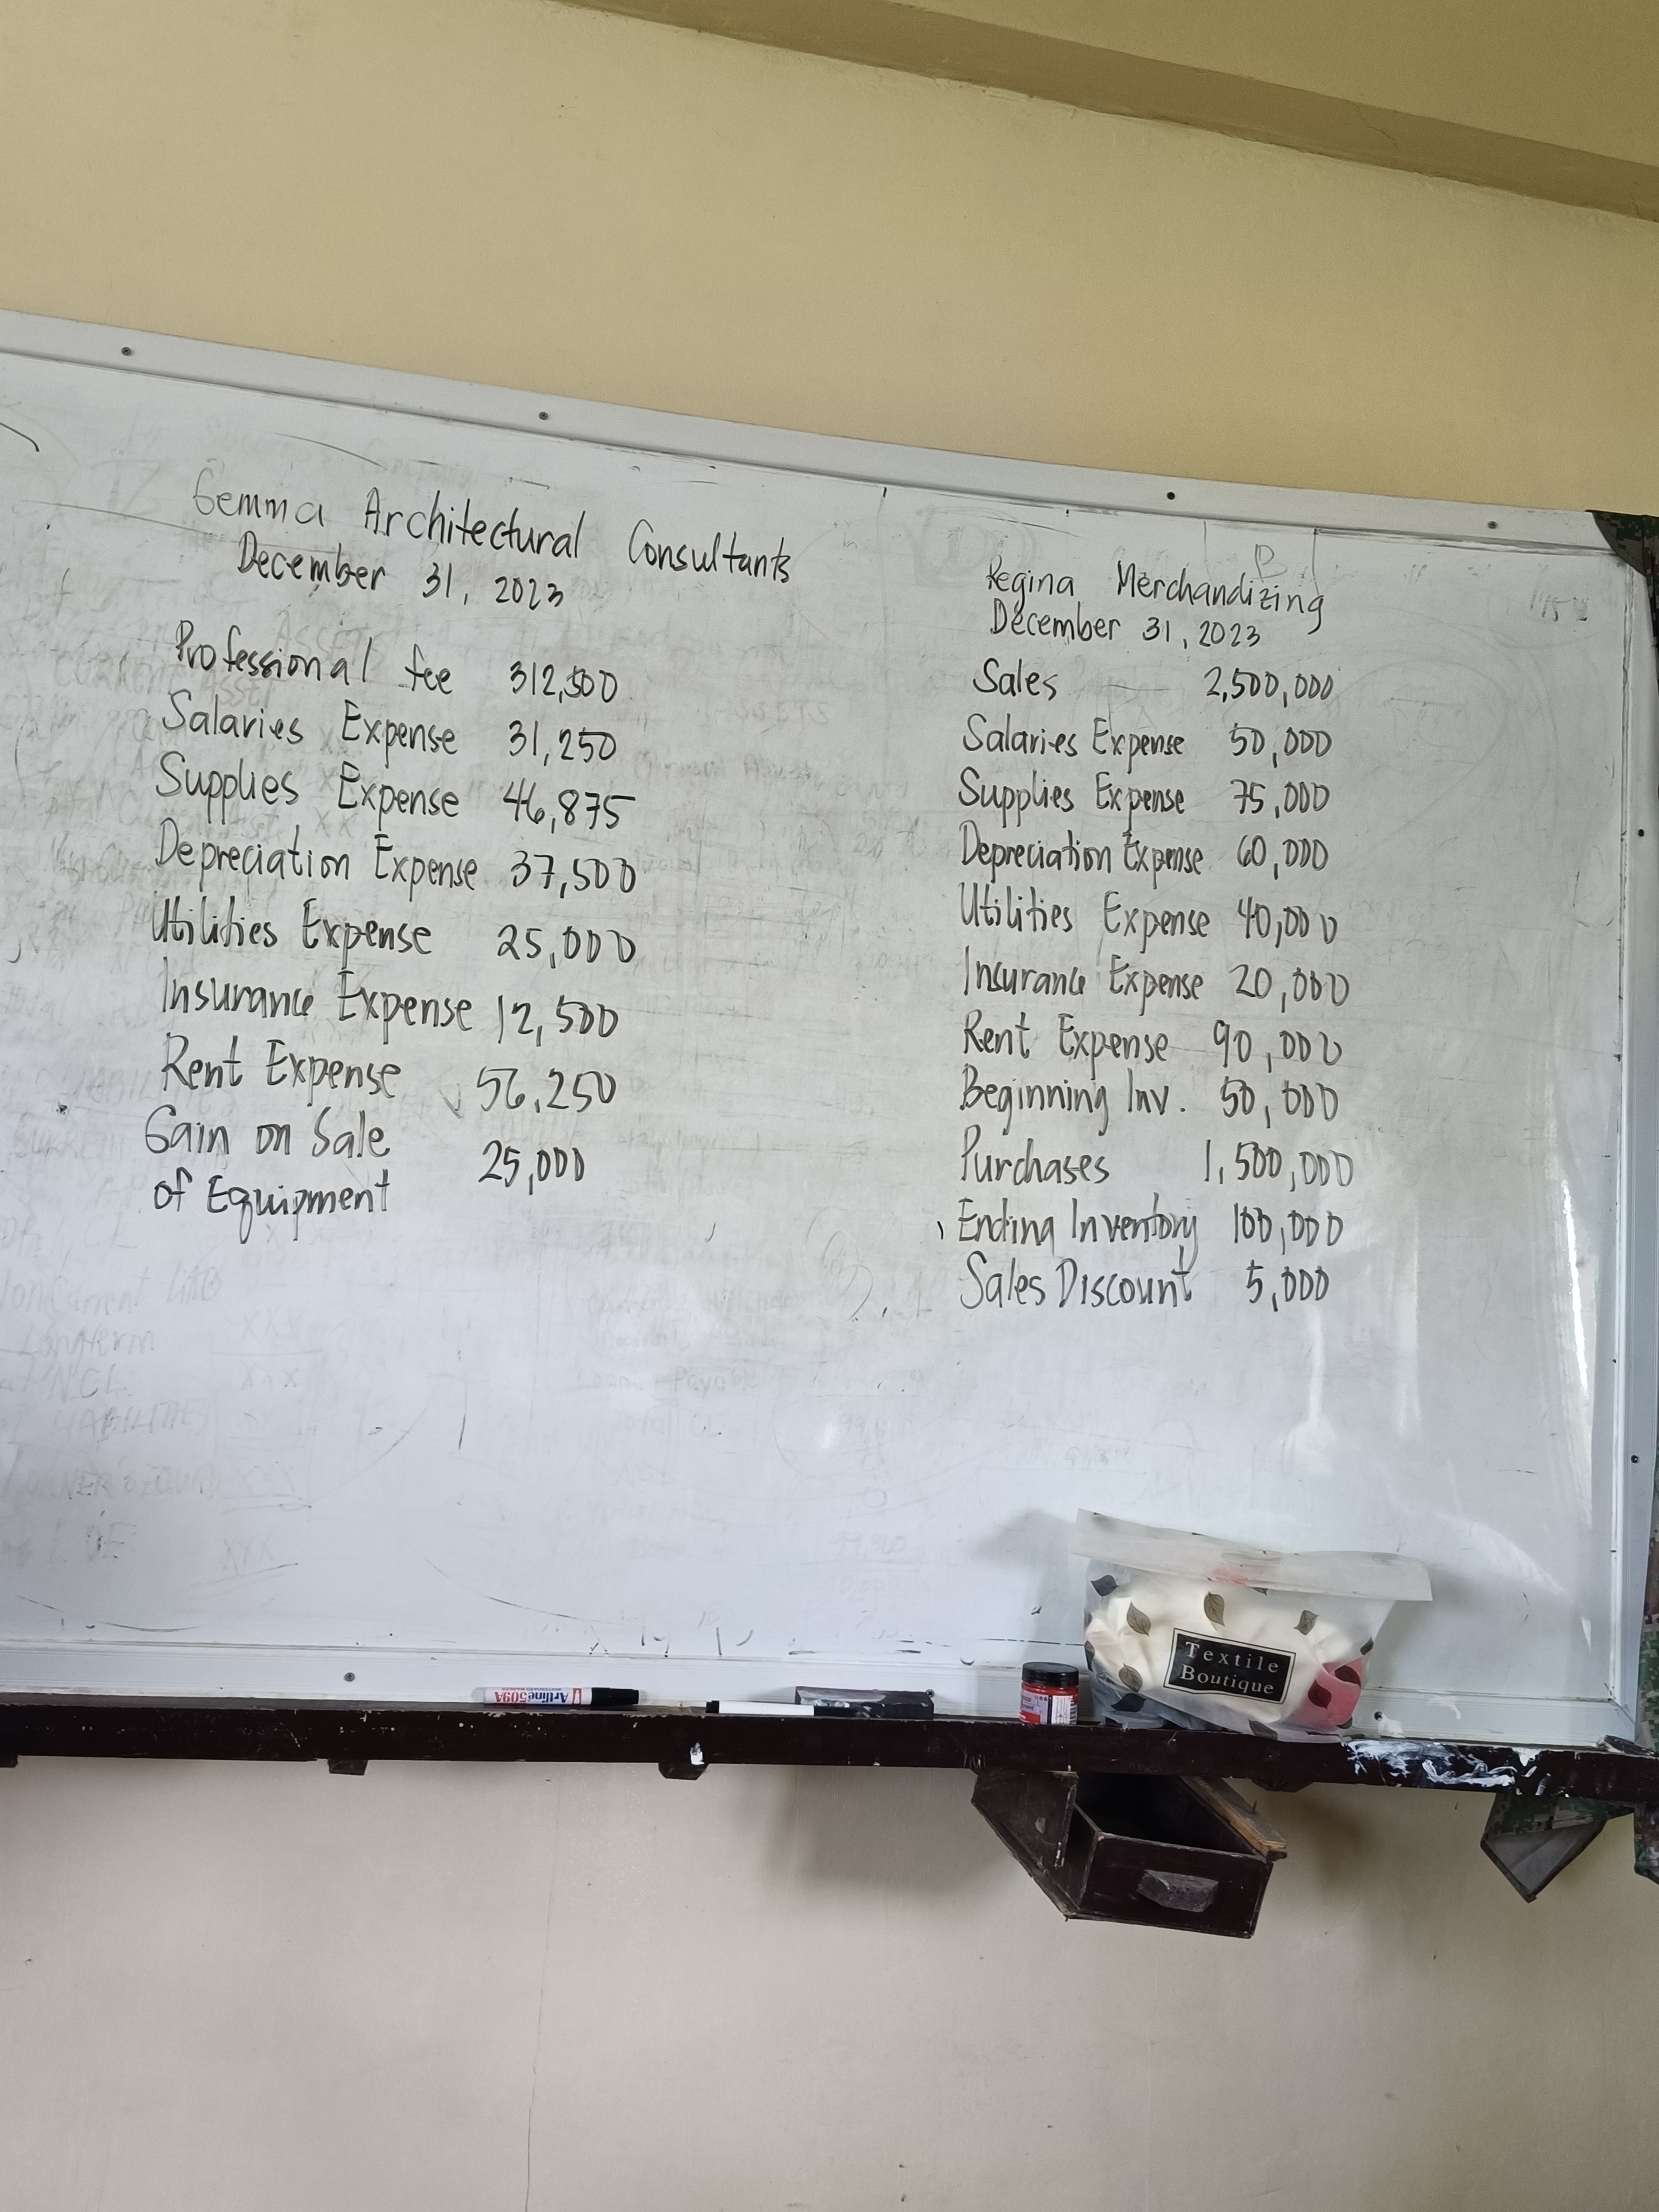 Gemma Architectural Consultants
December 31, 2023
Professional fee 312,500
Salaries Expense 31,250
Supplies Expense 46,875
Depreciation Expense 37,500
Utilities Expense 25,000
Insurance Expense 12,500
Rent Expense 56,250
Gain on Sale
of Equipment 25,000
Regina Merchandizing
December 31, 2023
Sales 2,500,000
Salaries Expense 50,000
Supplies Expense 75,000
Depreciation Expense 60,000
Utilities Expense 40,000
Insurance Expense 20,000
Rent Expense 90,000
Beginning Inv. 50,000
Purchases 1,500,000
Ending Inventory 100,000
Sales Discount 5,000
Textile
Boutique
Artline 509A